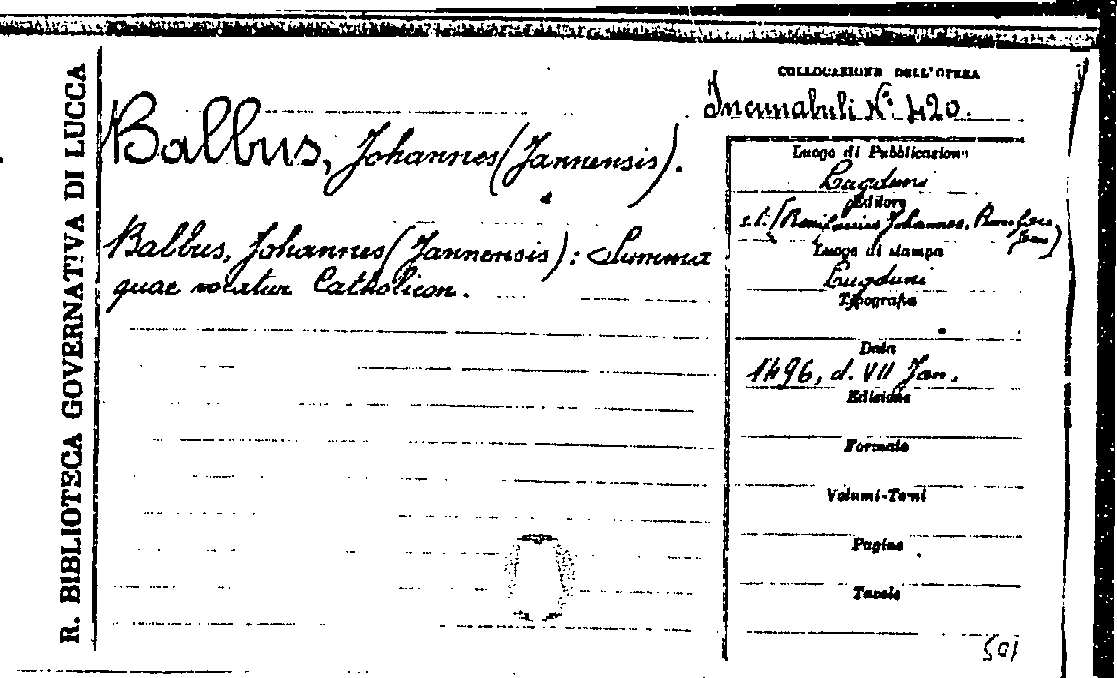 R. BIBLIOTECA GOVERNATIVA DI LUCCA
Balbus, Johannes (Jannensis).
Balbus, Johannes (Jannensis): Summa
quae vocatur Catholicon.
COLLOCAZIONE DELL'OPERA
Incunabuli N.º 420.
Luogo di Pubblicazione
Lugduni
Editore
s.t. [Bonifacius Johannes,
Luogo di stampa
Lugduni
Tipografia
Data
1496, d. VII Jan.
Edizione
Formato
Volumi-Tomi
Pagine
Tavole
501